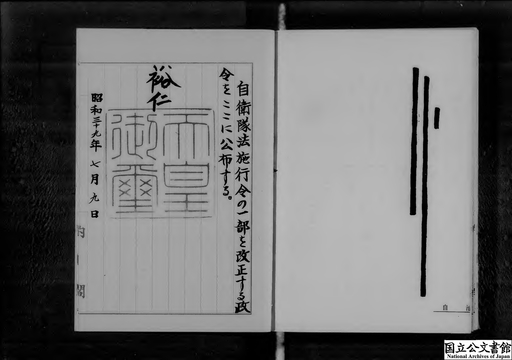 自衛隊法施行令の一部を改正する政
令をここに公布する。
裕仁
天皇
御璽
昭和三十九年七月九日
内閣
国立公文書館
National Archives of Japan